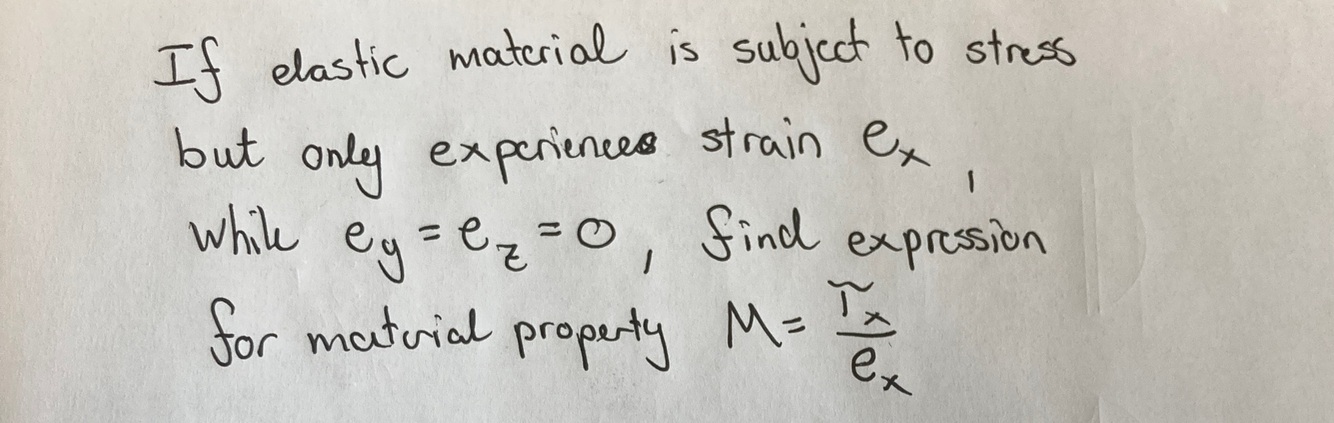 If elastic material is subject to stress
but only experiences strain eₓ,
while e_y = e_z = 0, find expression
for material property M = τₓ/eₓ